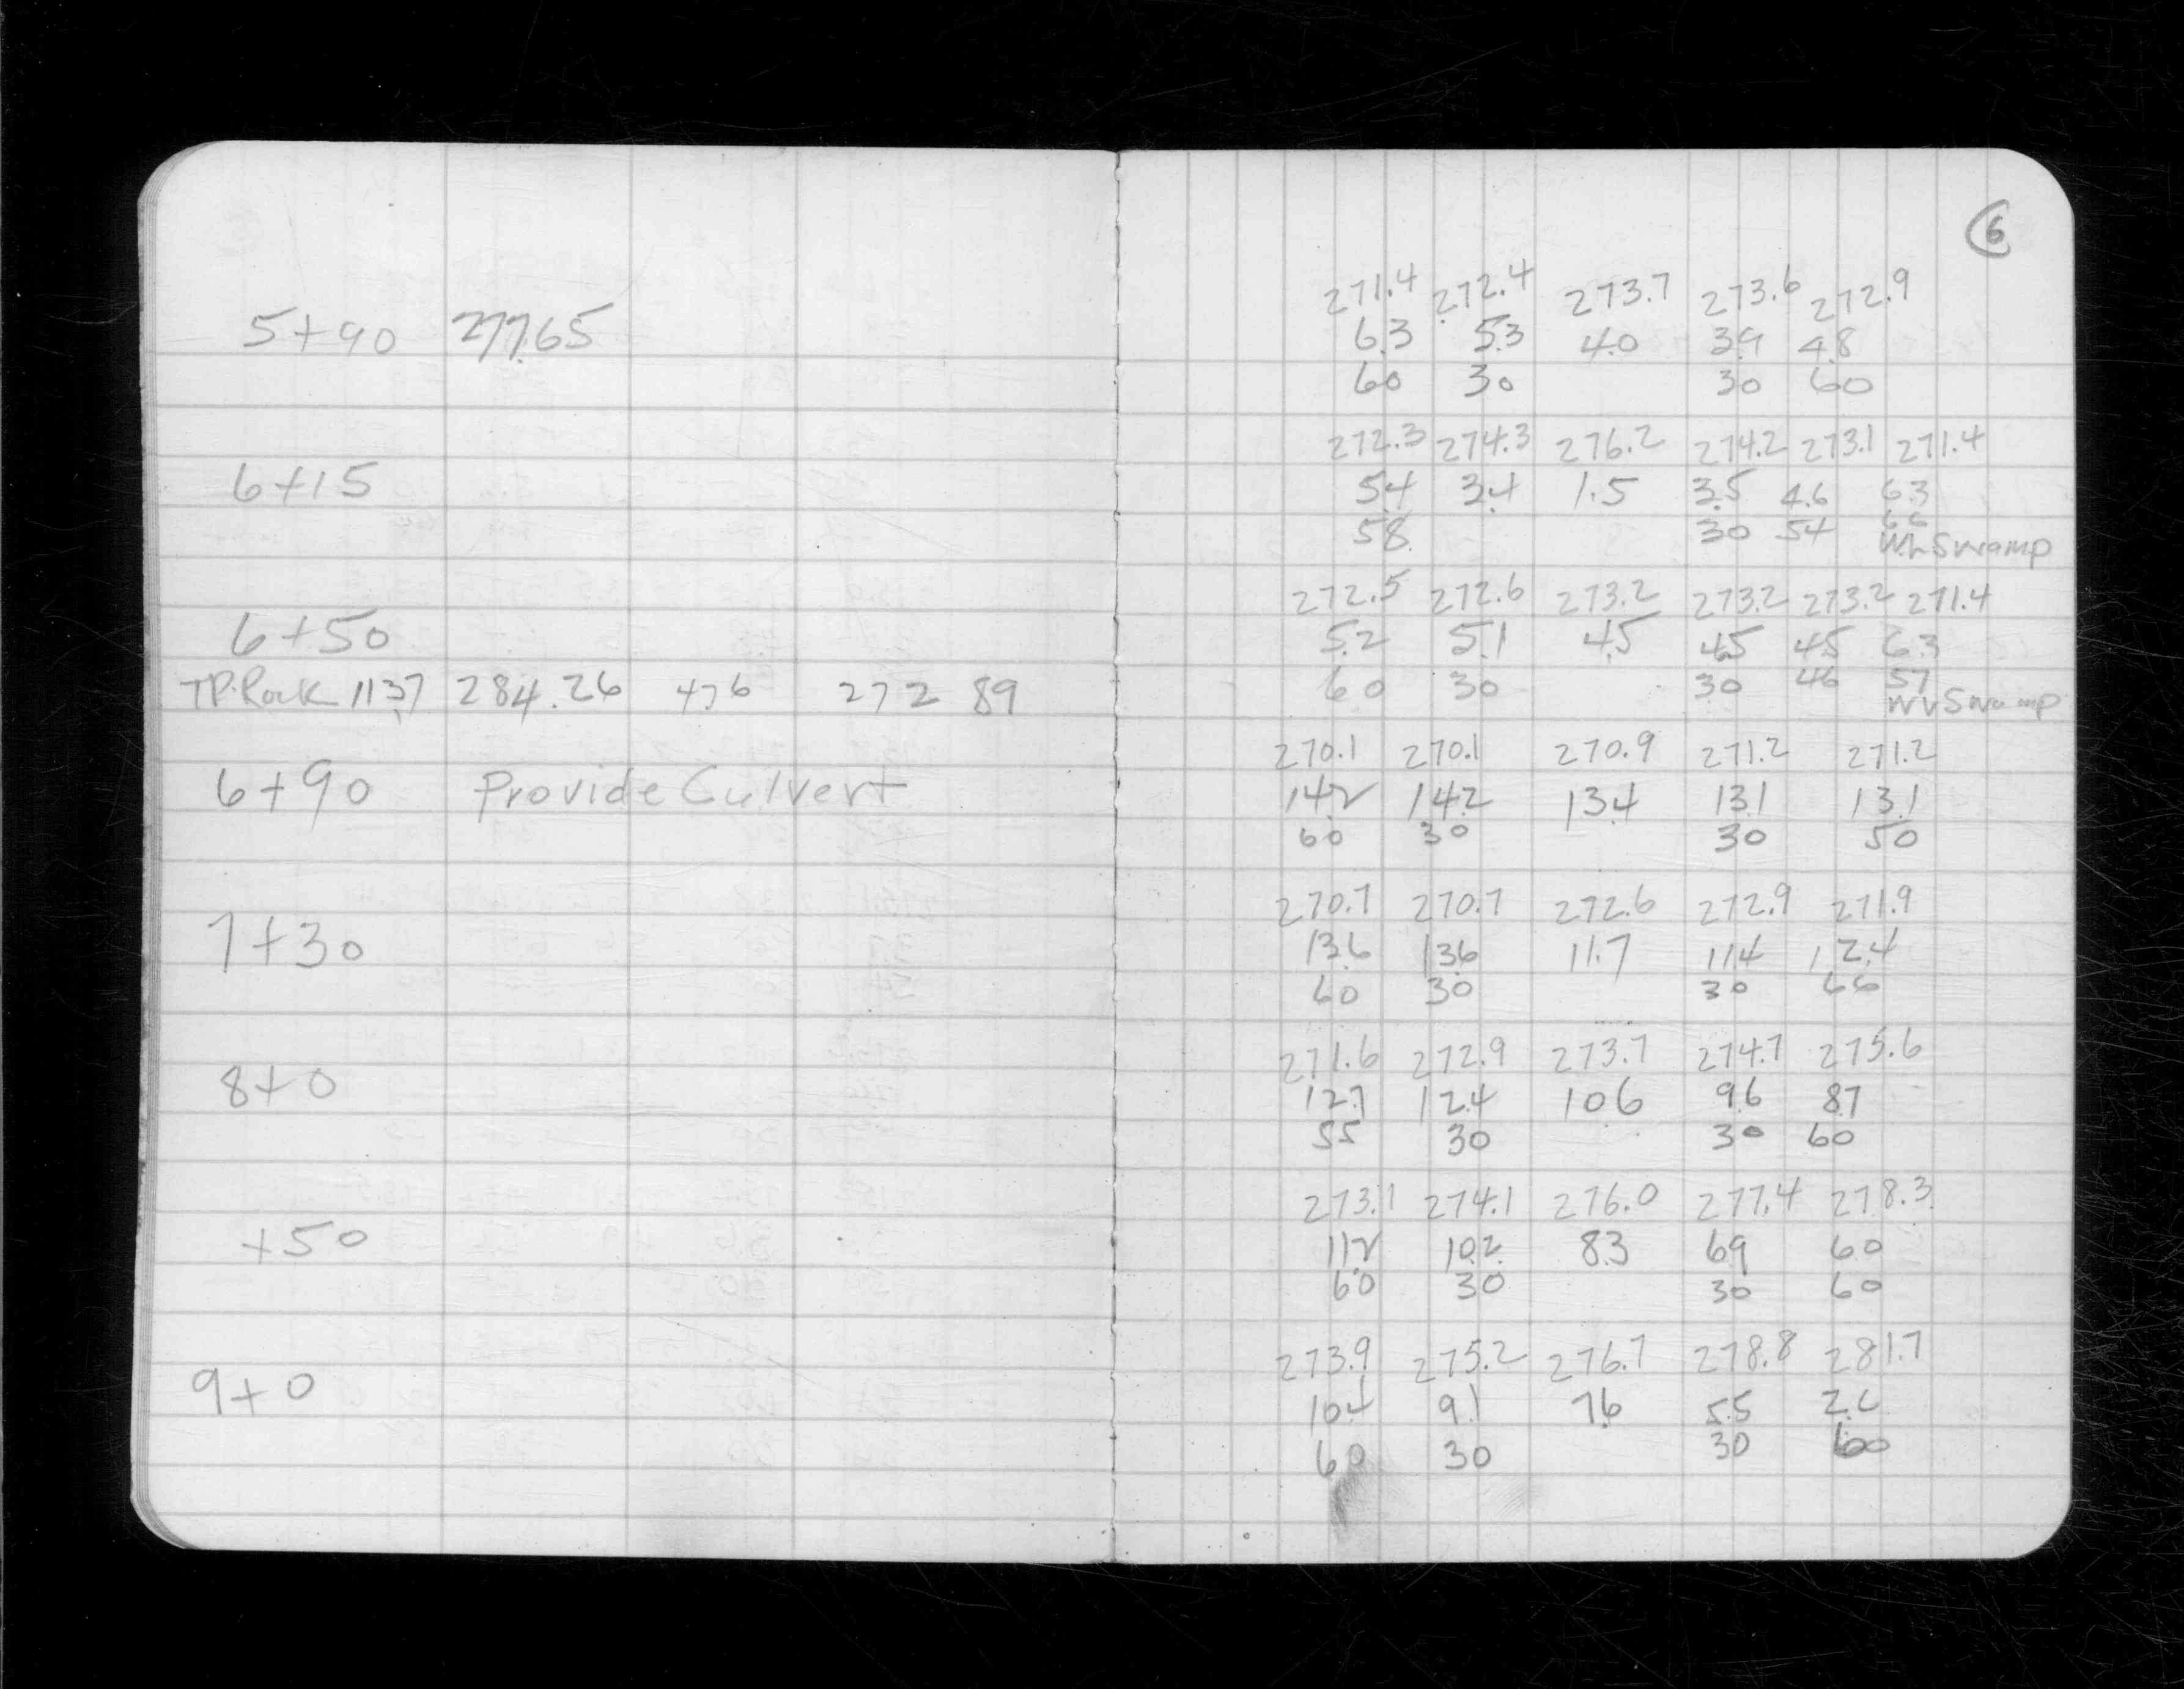 6
5+90 277.65
271.4 272.4 273.7 273.6 272.9
6.3 5.3 4.0 3.9 4.8
60 30 30 60
6+15
272.3 274.3 276.2 274.2 273.1 271.4
5.4 3.4 1.5 3.5 4.6 6.3
58 30 54 66
Swamp
6+50
272.5 272.6 273.2 273.2 273.2 271.4
5.2 5.1 4.5 4.5 4.5 6.3
60 30 30 46 57
Swamp
T.P. Rock 11.37 284.26 4.76 272 89
6+90 Provide Culvert
270.1 270.1 270.9 271.2 271.2
14.2 14.2 13.4 13.1 13.1
60 30 30 50
7+30
270.7 270.7 272.6 272.9 271.9
13.6 13.6 11.7 11.4 12.4
60 30 30 66
8+0
271.6 272.9 273.7 274.7 275.6
12.7 12.4 10 6 9.6 8.7
55 30 30 60
+50
273.1 274.1 276.0 277.4 278.3
11.2 10.2 8.3 6.9 6.0
60 30 30 60
9+0
273.9 275.2 276.7 278.8 281.7
10.4 9.1 7.6 5.5 2.6
60 30 30 60